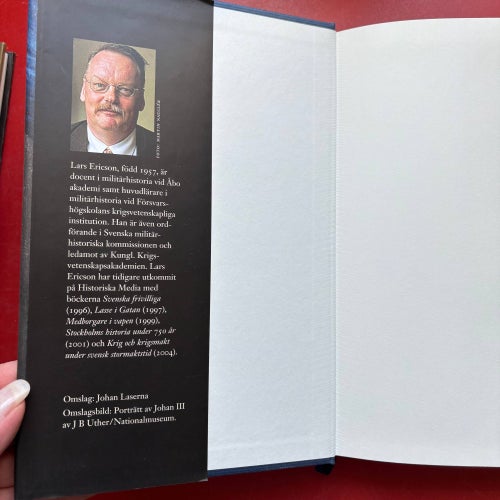 FOTO: MARTIN NAUCLÉR
Lars Ericson, född 1957, är
docent i militärhistoria vid Åbo
akademi samt huvudlärare i
militärhistoria vid Försvars-
högskolans krigsvetenskapliga
institution. Han är även ord-
förande i Svenska militär-
historiska kommissionen och
ledamot av Kungl. Krigs-
vetenskapsakademien. Lars
Ericson har tidigare utkommit
på Historiska Media med
böckerna Svenska frivilliga
(1996), Lasse i Gatan (1997),
Medborgare i vapen (1999),
Stockholms historia under 750 år
(2001) och Krig och krigsmakt
under svensk stormaktstid (2004).
Omslag: Johan Laserna
Omslagsbild: Porträtt av Johan III
av J B Uther/Nationalmuseum.